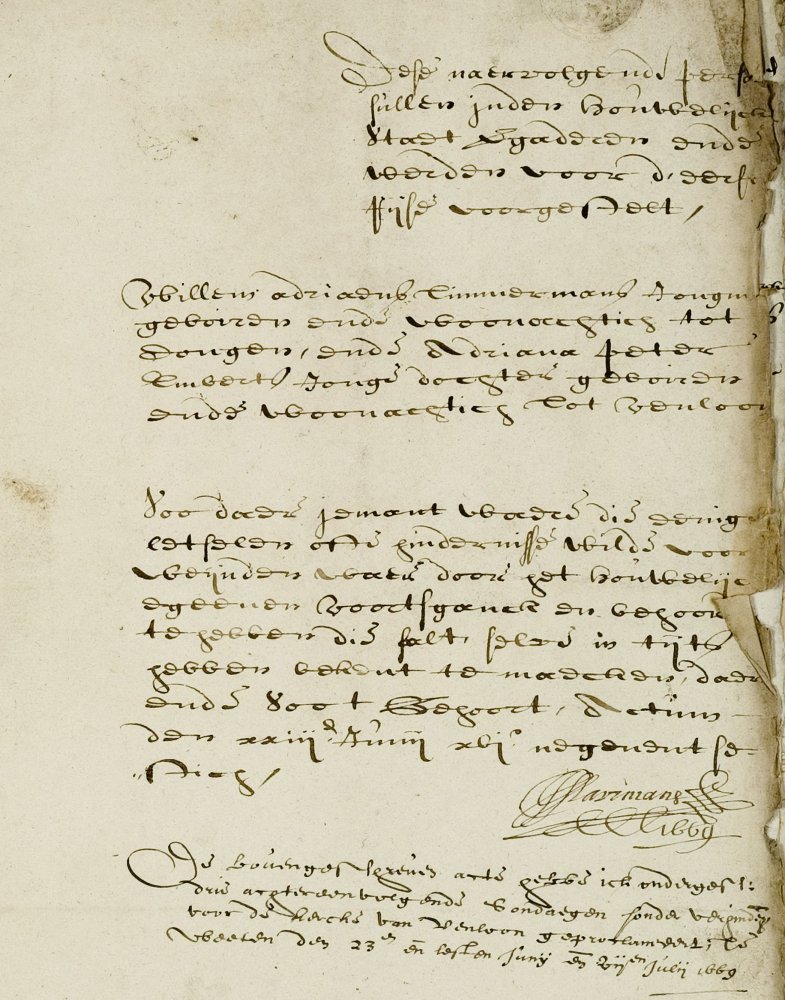 Dese naervolgende perso
sullen inden houwelijcke
Staet vgaderen ende
werden voor d'eerste
Reijse voorgestelt,
Willem adriaens Timmermans Jongm
geboiren ende woonachtich tot
dongen, ende Adriana peter
Embert Jonge dochter geboiren
ende woonachtich tot Venloon
Soo daer jemant waere die eenige
letselen ofte hindernisse wilde voor
weynden waer door het houwelijc
egeenen voortsganck en behoor
te hebben die salt selve in tijts
hebben bekent te maecken, daer
ende soo t Gehoort, Actum
den xxiij Junij xvj negenent se-
stich,
1669
De bovengeschreven acte hebbe ick ondergesz:
drie achtereenvolgende sondaegen sonder verhinderinge
voor de kercke van Venloon geproclameert, te
weeten den 23en en lesten Junij en vijen Julij 1669